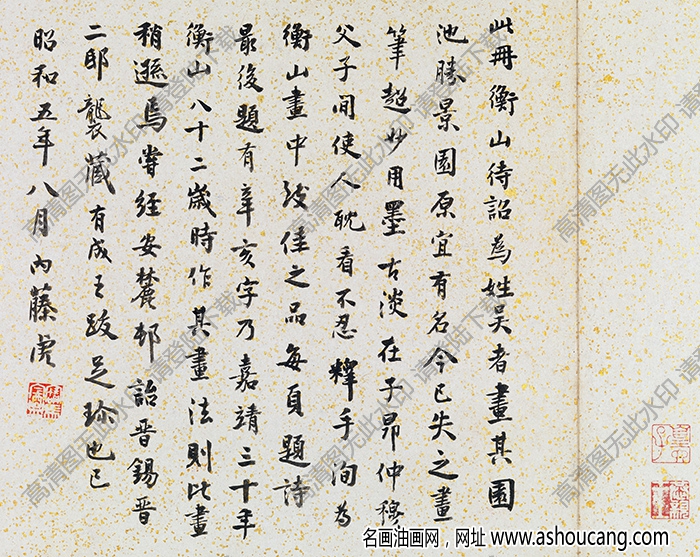 此冊衡山待詔為姓吳者畫其園
池勝景園原宜有名今已失之畫
筆超妙用墨古淡在子昂仲穆
父子間使人耽看不忍釋手洵為
衡山畫中致佳之品每頁題詩
最後題有辛亥字乃嘉靖三十年
衡山八十二歲時作其畫法則此畫
稍遜焉嘗經安麓邨詒晉錫晉
二邸襲藏有成王跋足珍也已
昭和五年八月內藤虎
高清图无此水印 请登陆下载
名画油画网，网址 www.ashoucang.com